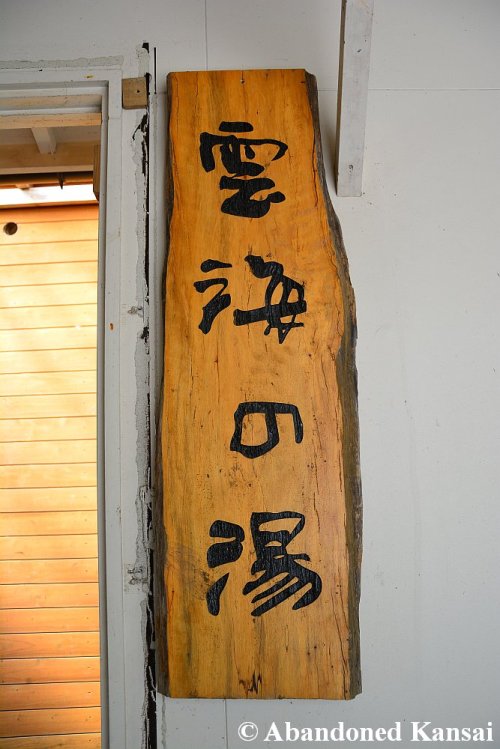 雲海の湯
© Abandoned Kansai